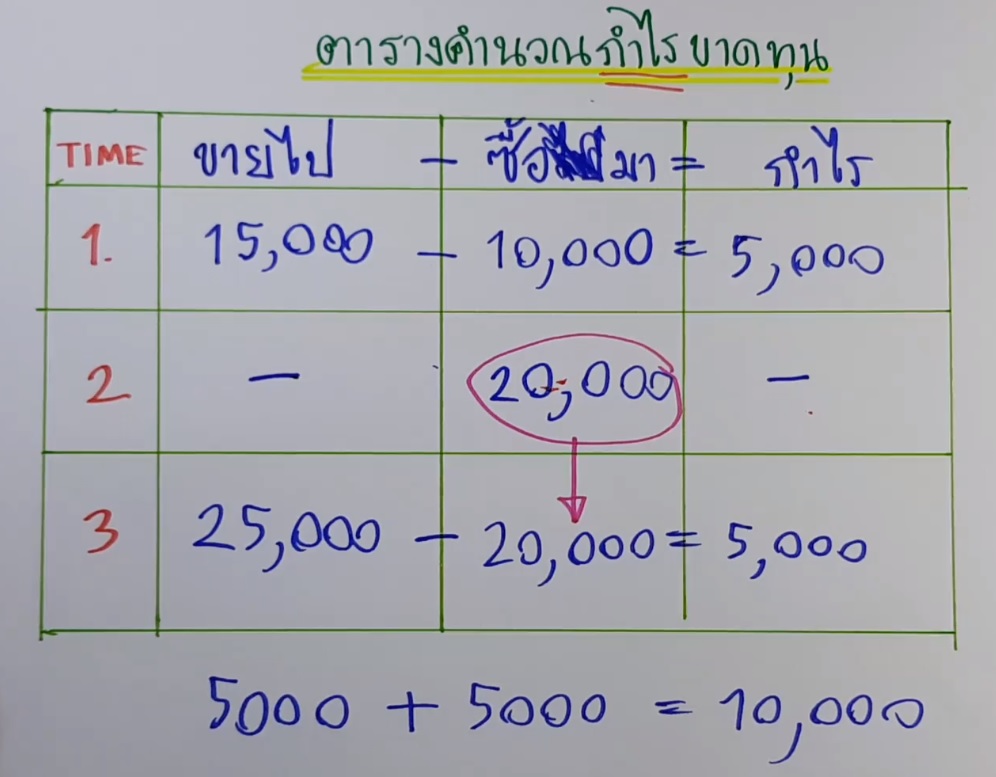 ตารางคำนวณกำไรขาดทุน
TIME ขายไป - ซื้อมา = กำไร
1. 15,000 - 10,000 = 5,000
2 - 20,000 -
3 25,000 - 20,000 = 5,000
5000 + 5000 = 10,000